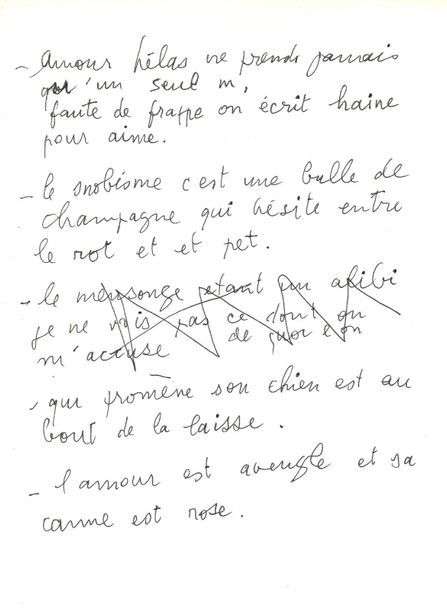 - amour hélas ne prend jamais
qu'un seul m,
faute de frappe on écrit haine
pour aime.
- le snobisme c'est une bulle de
champagne qui hésite entre
le rot et et pet.
- le mensonge étant un alibi
je ne vois pas ce dont on
m'accuse de quoi l'on
- qui promène son chien est au
bout de la laisse.
- l'amour est aveugle et sa
canne est rose.